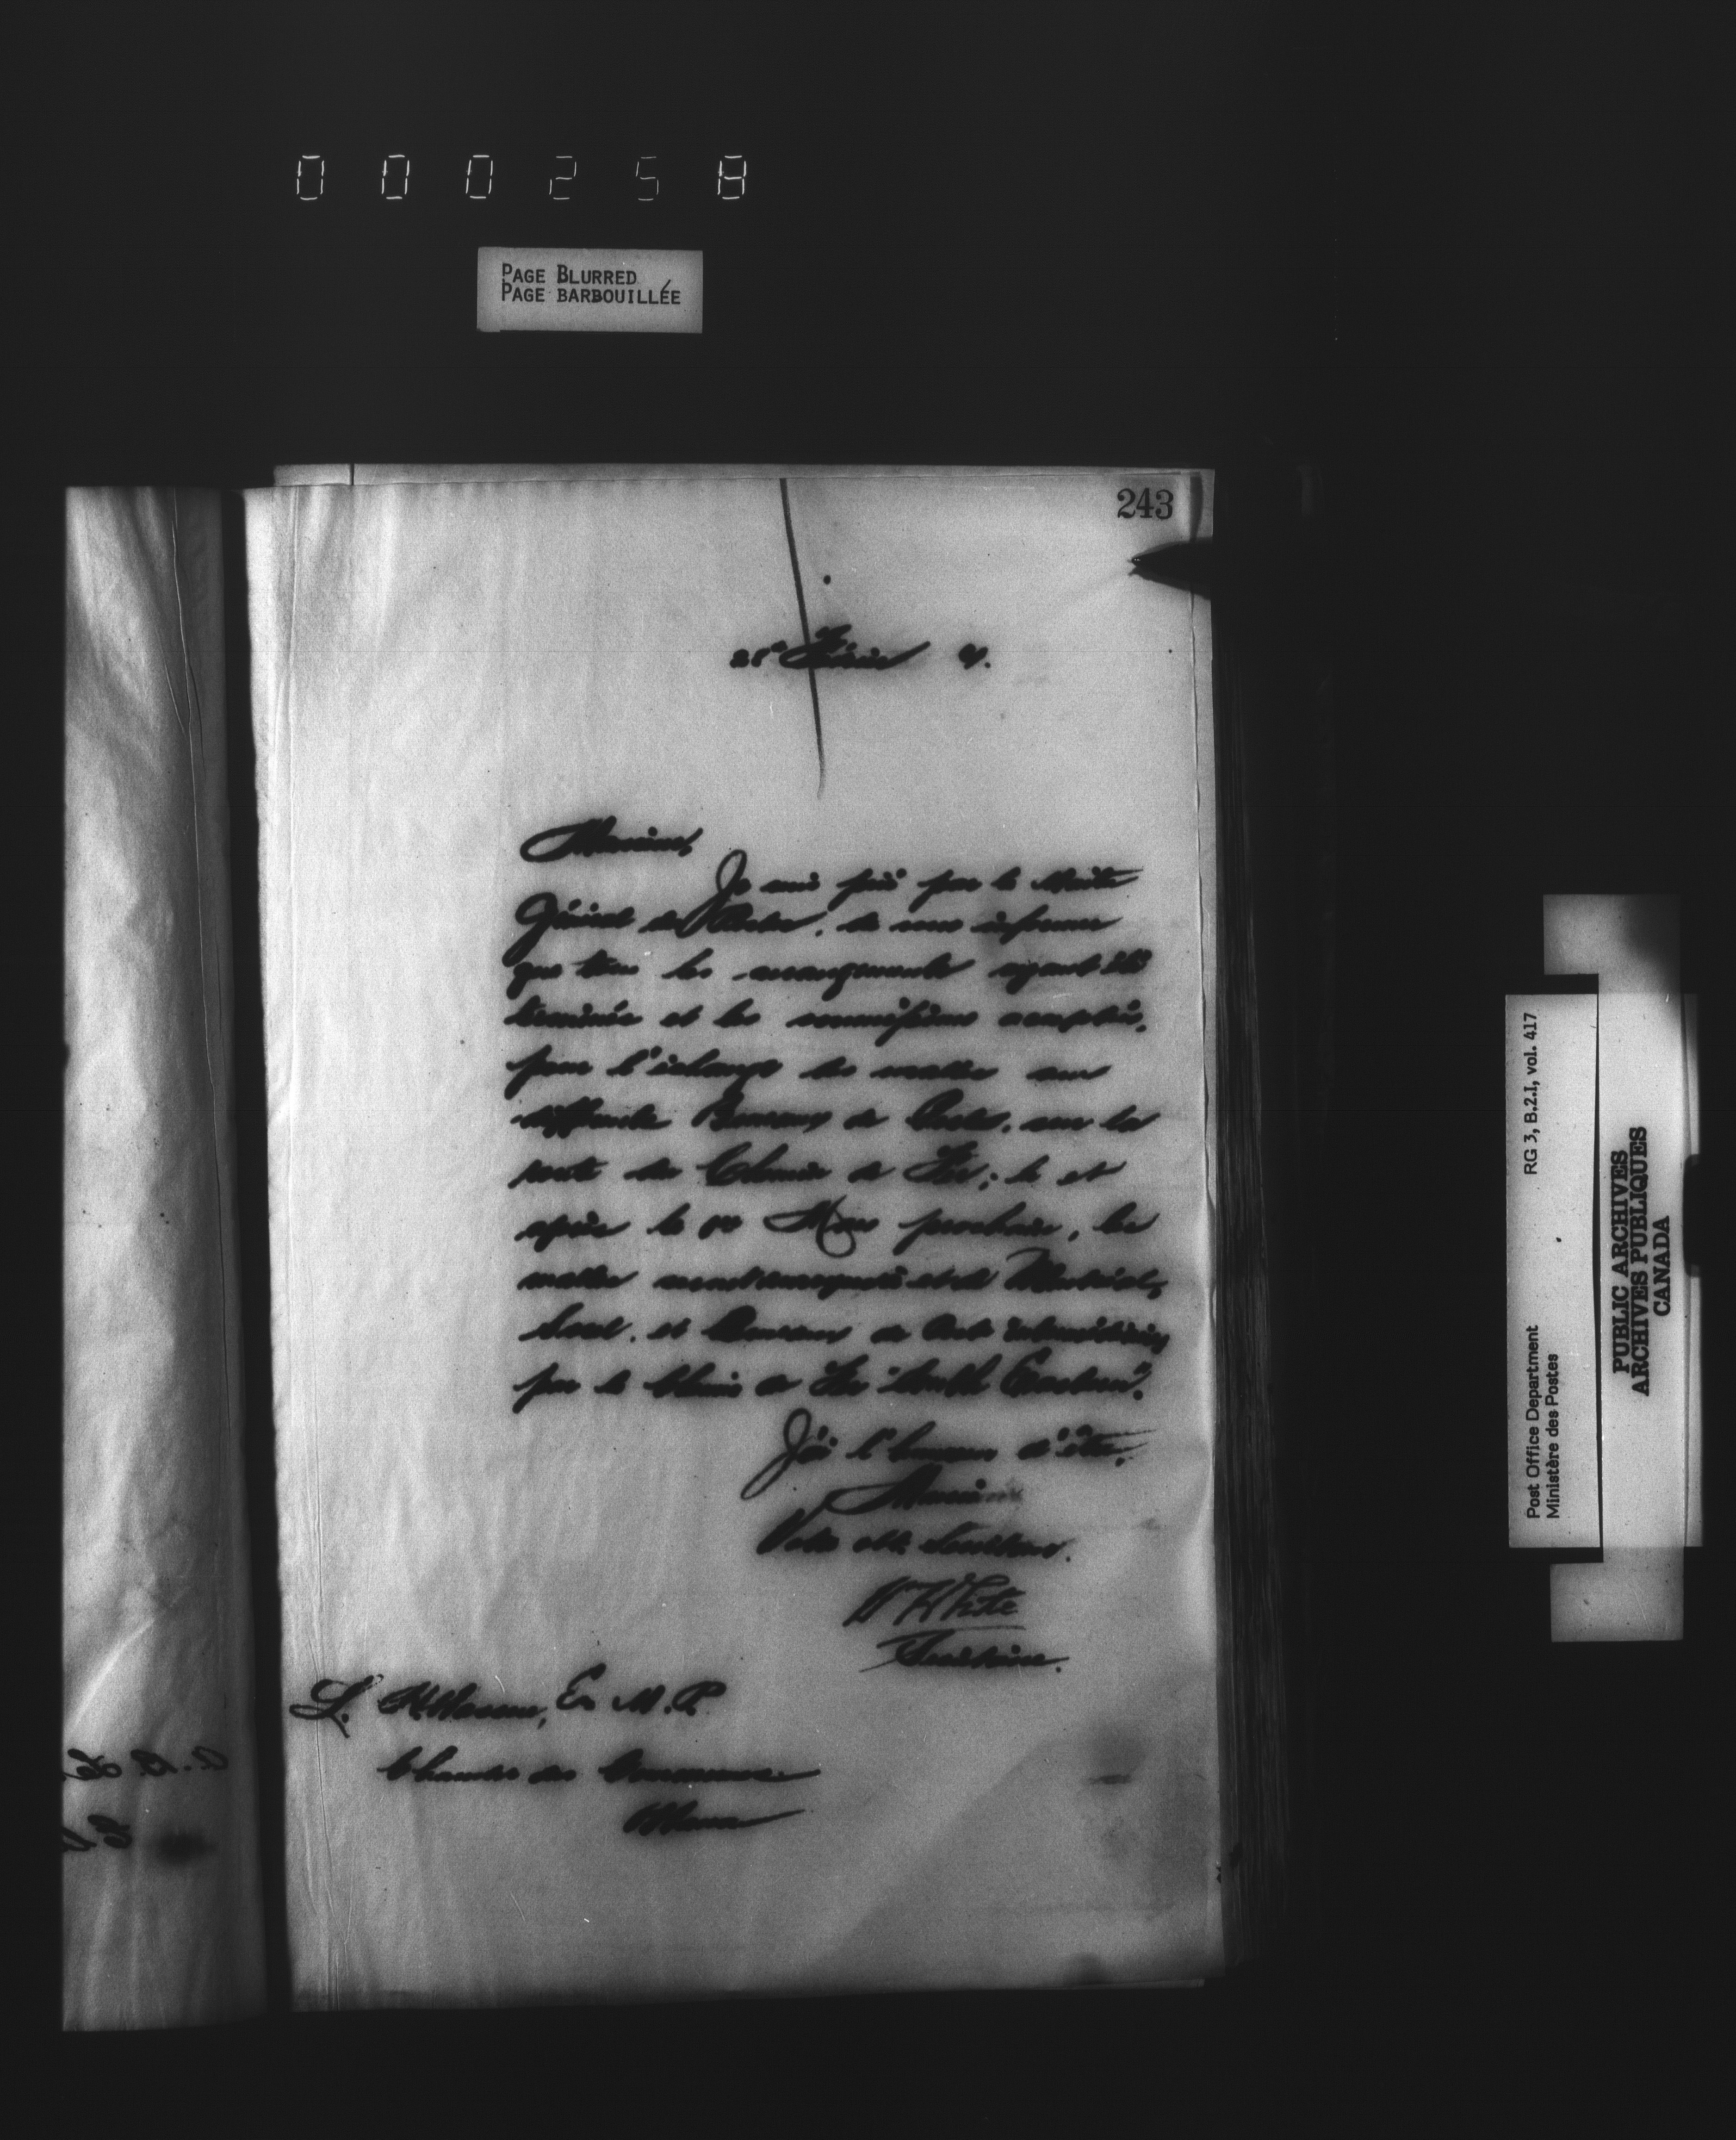 000258
PAGE BLURRED
PAGE BARBOUILLÉE
243
28 Février
Monsieur,
Je suis prié par le Maître
Général des Postes, de vous informer
que tous les arrangements ayant été
terminés et les
pour l'échange des malles aux
différents Bureaux de Poste, sur les
Chemin de Fer; le et
après le 1er Mars prochain, les
malles seront et de Montréal,
Sorel, et Bureaux de Poste intermédiaires
par le Chemin de Fer "South Eastern".
J'ai l'honneur d'être,
Monsieur
Votre obt. Serviteur.
W White
Secrétaire.
L. H. Massue, Ecr M.P.
Chambre des Communes.
Ottawa
RG 3, B.2.I, vol. 417
Post Office Department
Ministère des Postes
PUBLIC ARCHIVES
ARCHIVES PUBLIQUES
CANADA